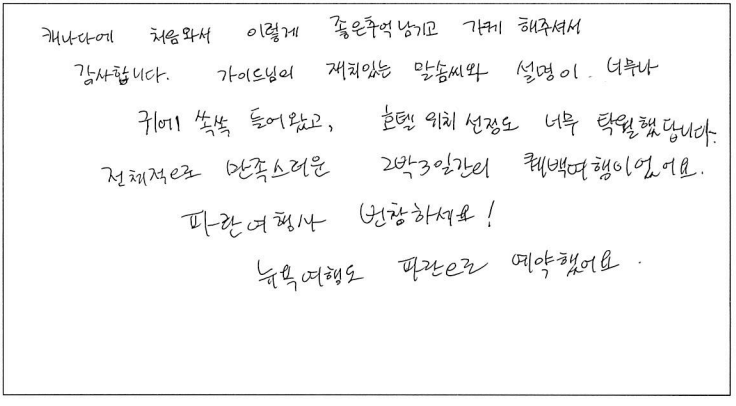 캐나다에 처음와서 이렇게 좋은추억 남기고 가게 해주셔서
감사합니다. 가이드님의 재치있는 말솜씨와 설명이 너무나
귀에 쏙쏙 들어왔고, 호텔 위치 선정도 너무 탁월했답니다.
전체적으로 만족스러운 2박3일간의 퀘백여행이었어요.
파란여행사 번창하세요!
뉴욕여행도 파란으로 예약했어요.